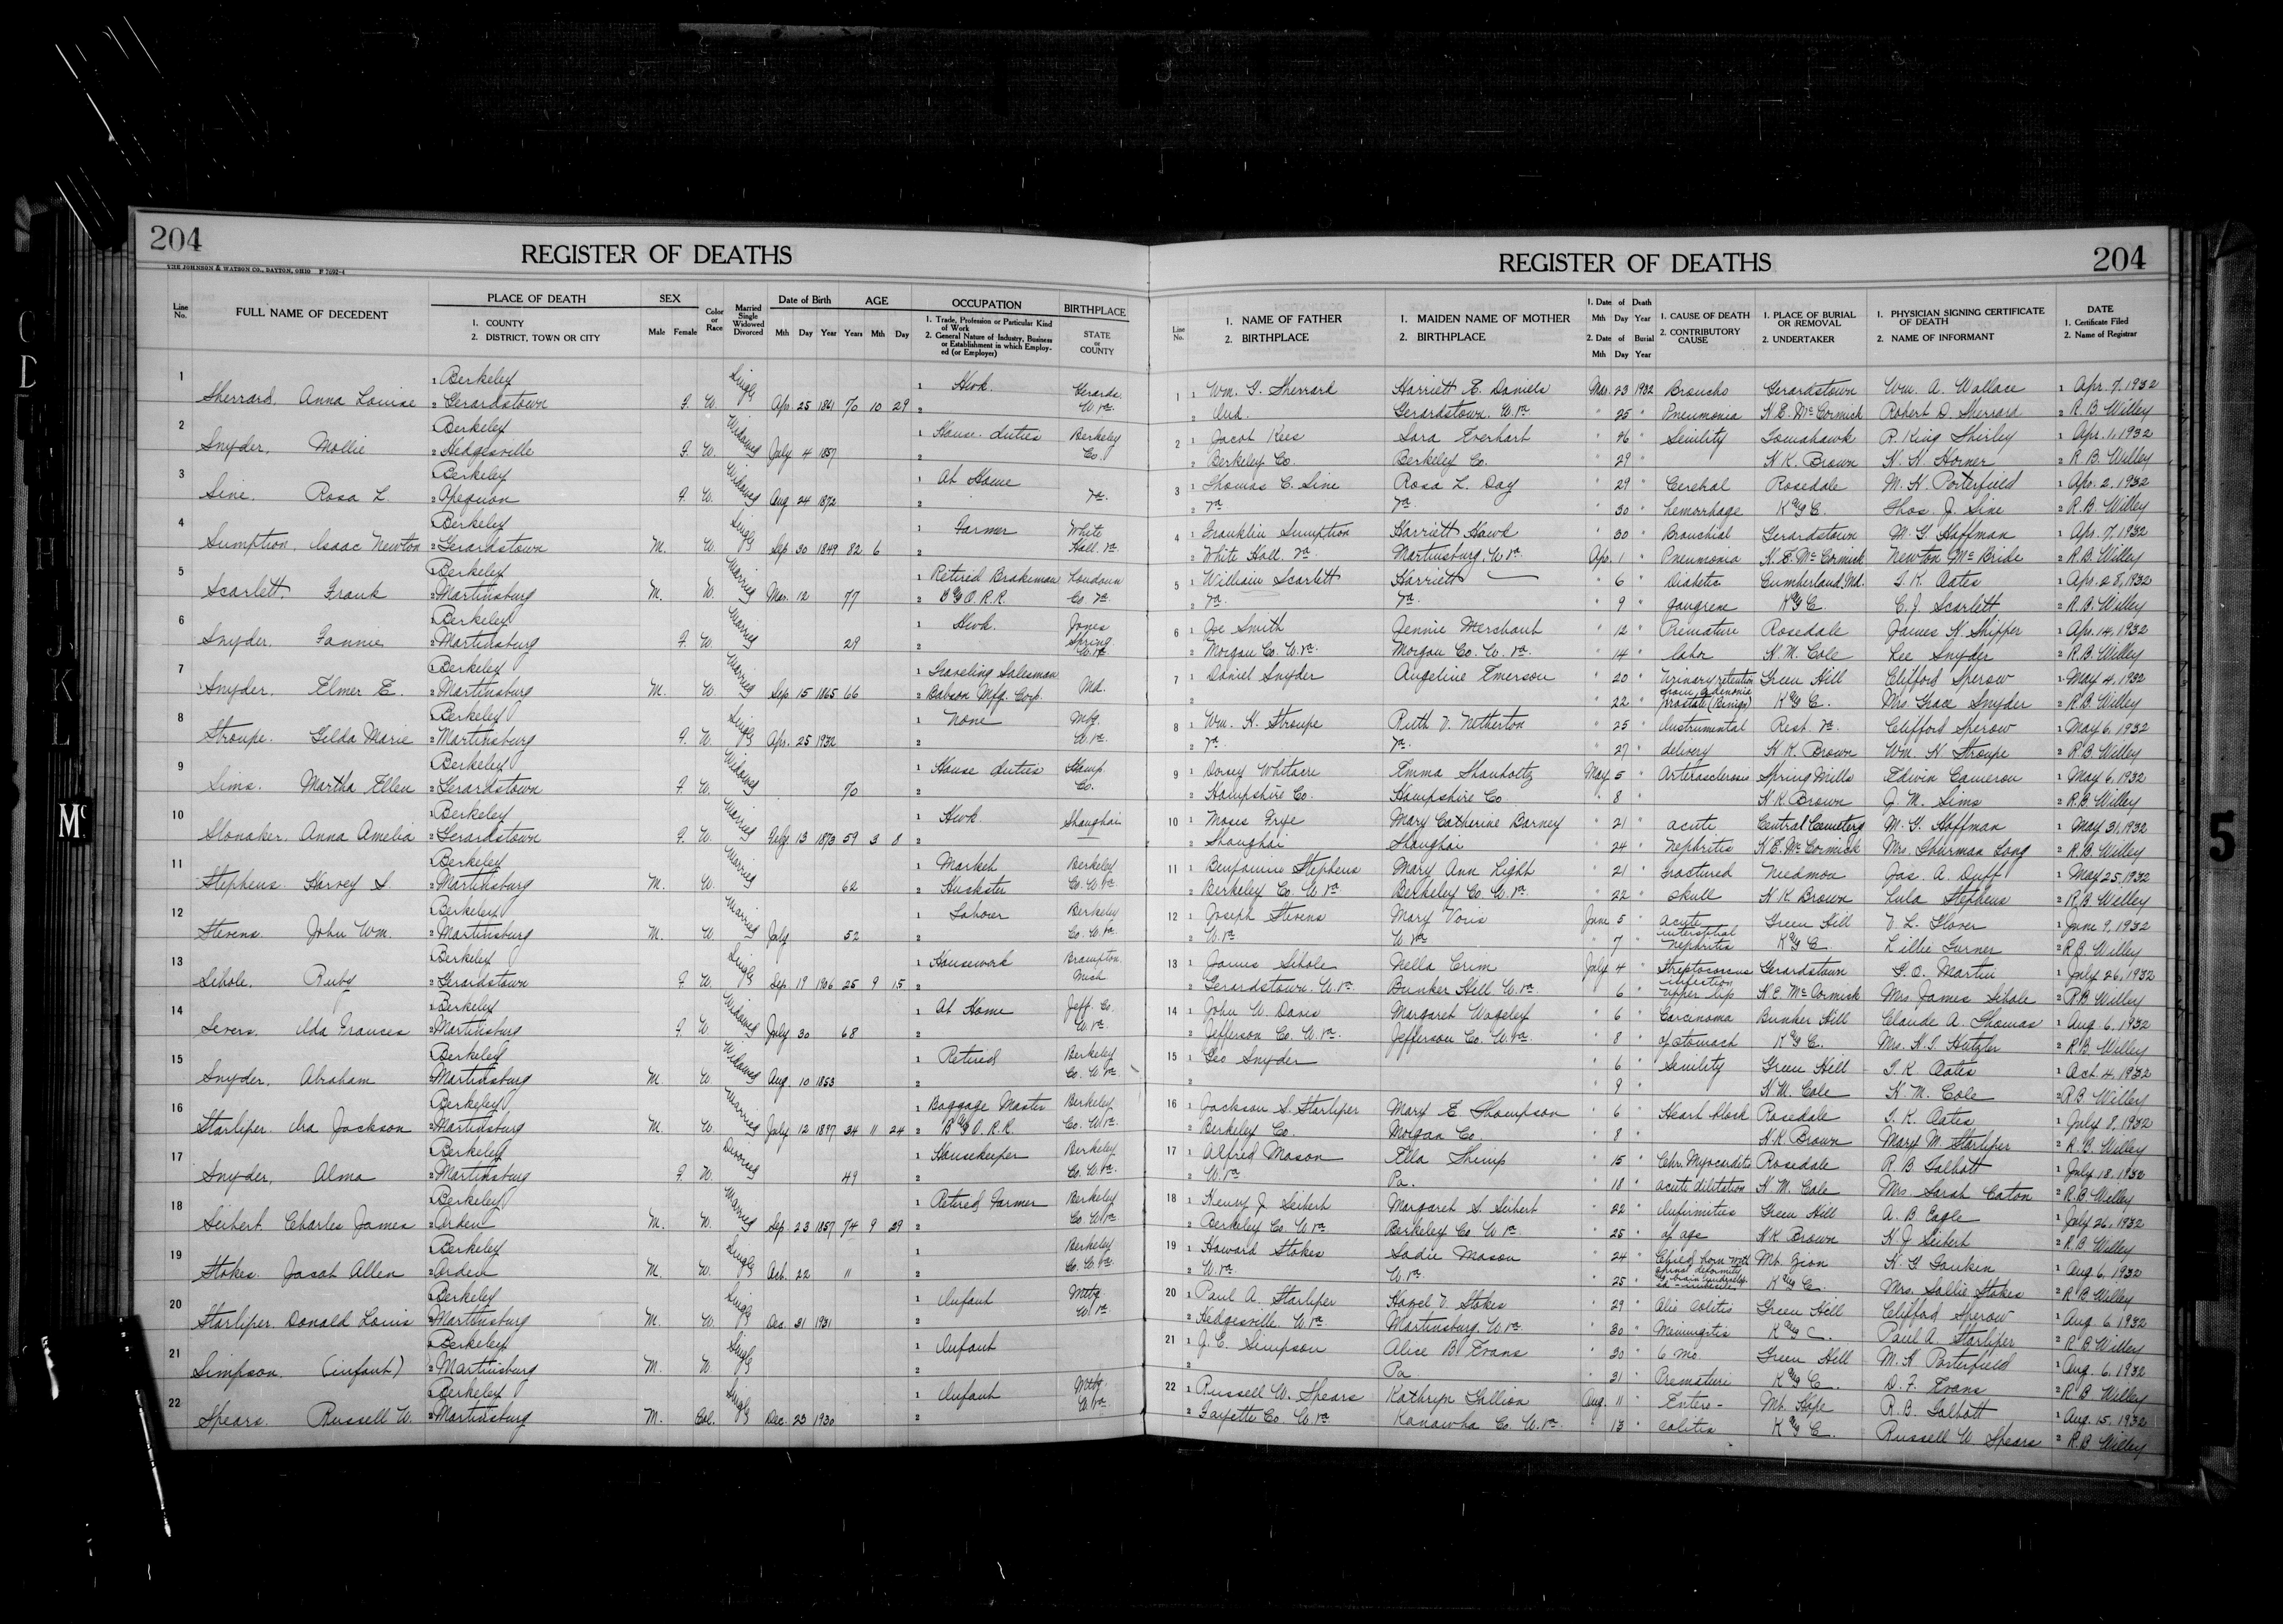 204
REGISTER OF DEATHS
THE JOHNSON & WATSON CO., DAYTON, OHIO F 7692-4
Line No.
FULL NAME OF DECEDENT
PLACE OF DEATH
1. COUNTY
2. DISTRICT, TOWN OR CITY
SEX
Male Female
Color or Race
Married Single Widowed Divorced
Date of Birth
Mth Day Year
AGE
Years Mth Day
OCCUPATION
1. Trade, Profession or Particular Kind of Work
2. General Nature of Industry, Business or Establishment in which Employed (or Employer)
BIRTHPLACE
STATE or COUNTY
1 Sherrard, Anna Louise 1 Berkeley 2 Gerardstown F. W. Single Apr 25 1861 70 10 29 1 Hwk. 2 Gerards. W. Va.
2 Snyder, Mollie Berkeley 2 Hedgesville F. W. Widowed July 4 1857 1 House duties 2 Berkeley Co.
3 Sine. Rosa L. Berkeley 2 Opequon F. W. Widowed Aug 24 1872 1 At Home 2 Va.
4 Sumption, Isaac Newton Berkeley 2 Gerardstown M. W. Single Sep 30 1849 82 6 1 Farmer 2 White Hall. Va.
5 Scarlett Frank Berkeley 2 Martinsburg M. W. Married Mar. 12 77 1 Retired Brakeman 2 B & O. R.R. Loudoun Co. Va.
6 Snyder. Fannie Berkeley 2 Martinsburg F. W. Married 29 1 Hwk. 2 Jones Spring W. Va.
7 Snyder. Elmer E. Berkeley 2 Martinsburg M. W. Married Sep. 15 1865 66 1 Traveling Salesman 2 Babson Mfg. Corp. Md.
8 Stroupe. Gelda Marie Berkeley 2 Martinsburg F. W. Single Apr. 25 1932 1 None 2 Mbg. W. Va.
9 Sims. Martha Ellen Berkeley 2 Gerardstown F. W. Widowed 70 1 House duties 2 Hamp. Co.
10 Slonaker. Anna Amelia 1 Berkeley 2 Gerardstown F. W. Married Feby 13 1873 59 3 8 1 Hwk. 2 Shanghai
11 Stephens. Harvey S. Berkeley 2 Martinsburg M. W. Married 62 1 Market 2 Huckster Berkeley Co. W. Va.
12 Stevens. John Wm. Berkeley 2 Martinsburg M. W. Married July 52 1 Laborer 2 Berkeley Co. W. Va.
13 Sibole. Ruby Berkeley 2 Gerardstown F. W. Single Sep. 19 1906 25 9 15 1 Housework 2 Brampton. Mich
14 Severs. Ida Frances 1 Berkeley 2 Martinsburg F. W. Widowed July 30 68 1 At Home 2 Jeff. Co. W. Va.
15 Snyder, Abraham Berkeley Martinsburg M. W. Widowed Aug. 10 1853 1 Retired 2 Berkeley Co. W. Va
16 Starliper. Ira Jackson Berkeley 2 Martinsburg M. W. Married July 12 1897 34 11 24 1 Baggage Master 2 B & O. R.R. Berkeley Co. W. Va.
17 Snyder, Alma Berkeley 2 Martinsburg F. W. Divorced 49 1 Housekeeper 2 Berkeley Co. W. Va.
18 Seibert Charles James 1 Berkeley 2 Arden M. W. Married Sep. 23 1857 74 9 29 1 Retired Farmer 2 Berkeley Co W. Va
19 Stokes. Jacob Allen Berkeley 2 Arden M. W. Single Oct. 22 11 1 2 Berkeley Co. W. Va.
20 Starliper. Donald Louis Berkeley 2 Martinsburg M. W. Single Dec. 31 1931 1 Infant 2 Mtbg. W. Va.
21 Simpson. (infant) Berkeley 2 Martinsburg M. W. Single 1 Infant 2
22 Spears. Russell W. Berkeley 2 Martinsburg M. Col. Single Dec. 23 1930 1 Infant 2 Mtbg. W. Va.
REGISTER OF DEATHS
204
Line No.
1. NAME OF FATHER
2. BIRTHPLACE
1. MAIDEN NAME OF MOTHER
2. BIRTHPLACE
1. Date of Death
Mth Day Year
2. Date of Burial
Mth Day Year
1. CAUSE OF DEATH
2. CONTRIBUTORY CAUSE
1. PLACE OF BURIAL OR REMOVAL
2. UNDERTAKER
1. PHYSICIAN SIGNING CERTIFICATE OF DEATH
2. NAME OF INFORMANT
DATE
1. Certificate Filed
2. Name of Registrar
1 1 Wm. G. Sherrard Harriett E. Daniels Mar. 23 1932 Broncho Gerardstown Wm. A. Wallace 1 Apr. 7, 1932
2 Ind. Gerardstown. W. Va " 25 " Pneumonia K. E. McCormick Robert D. Sherrard 2 R. B. Willey
2 1 Jacob Kees Sara Everhart " 26 " Senility Tomahawk R. King Shirley 1 Apr. 1, 1932
2 Berkeley Co. Berkeley Co. " 29 " K. K. Brown H. H. Horner 2 R. B. Willey
3 1 Thomas C. Sine Rosa L. Day " 29 " Cerebral Rosedale M. H. Porterfield 1 Apr. 2, 1932
2 Va. Va. " 30 " hemorrhage K & C. Thos. J. Sine 2 R. B. Willey
4 1 Franklin Sumption Harriett Hawk " 30 " Bronchial Gerardstown M. G. Hoffman 1 Apr. 7, 1932
2 White Hall. Va. Martinsburg, W. Va. Apr. 1 " Pneumonia K. E. McCormick Newton McBride 2 R. B. Willey
5 1 William Scarlett Harriett — " 6 " Diabetic Cumberland, Md. T. K. Oates 1 Apr. 28, 1932
2 Va. Va. " 9 " gangrene K & C. C. J. Scarlett 2 R. B. Willey
6 1 Joe Smith Jennie Merchant " 12 " Premature Rosedale James H. Shipper 1 Apr. 14, 1932
2 Morgan Co. W. Va. Morgan Co. W. Va. " 14 " labor H. M. Cole Lee Snyder 2 R. B. Willey
7 1 Daniel Snyder Angeline Emerson " 20 " Urinary retention Green Hill Clifford Sperow 1 May 4, 1932
2 " 22 " from adenoma prostate (Benign) K & C. Mrs Grace Snyder 2 R. B. Willey
8 1 Wm. H. Stroupe Ruth V. Netherton " 25 " Instrumental Rest. Va. Clifford Sperow 1 May 6, 1932
2 Va. Va. " 27 " delivery K. K. Brown Wm. H Stroupe 2 R. B. Willey
9 1 Dorsey Whitacre Emma Shanholtz May 5 " Arterosclerosis Spring Mills Edwin Cameron 1 May 6, 1932
2 Hampshire Co. Hampshire Co. " 8 " K. K. Brown J. M. Sims 2 R. B. Willey
10 1 Moses Frye Mary Catherine Barney " 21 " acute Central Cemetery M. G. Hoffman 1 May 31, 1932
2 Shanghai Shanghai " 24 " Nephritis K. E. McCormick Mrs. Thurman Long 2 R. B. Willey
11 1 Benjamin Stephens Mary Ann Light " 21 " fractured Jas. A. Duff 1 May 25, 1932
2 Berkeley Co. W. Va Berkeley Co. W. Va. " 22 " skull K. K. Brown Lula Stephens 2 R. B. Willey
12 1 Joseph Stevens Mary Voris June 5 " acute interstitial Green Hill V. L. Glover 1 June 9, 1932
2 W. Va W. Va " 7 " Nephritis K & C. Lillie Turner 2 R. B. Willey
13 1 James Sibole Nella Crim July 4 " Streptococcus infection Gerardstown G. O. Martin 1 July 26, 1932
2 Gerardstown. W. Va. Bunker Hill. W. Va. " 6 " upper lip K. E. McCormick Mrs. James Sibole 2 R. B. Willey
14 1 John W. Davis Margaret Wageley " 6 " Carcinoma Bunker Hill Claude A. Thomas 1 Aug. 6, 1932
2 Jefferson Co. W. Va. Jefferson Co. W. Va. " 8 " of stomach K & C. Mrs. H. T. Hutzler 2 R. B. Willey
15 1 Geo Snyder " 6 " Senility Green Hill T. K. Oates 1 Oct. 4, 1932
2 " 9 " H. M. Cole H. M. Cole 2 R. B. Willey
16 1 Jackson S. Starliper Mary E. Thompson " 6 " Heart block Rosedale T. K. Oates 1 July 8, 1932
2 Berkeley Co. Morgan Co. " 8 " K. K. Brown Mary M. Starliper 2 R. B. Willey
17 1 Alfred Mason Ella Shimp " 15 " Chr. Myocarditis Rosedale R. B. Talbott 1 July 18, 1932
2 W. Va Pa. " 18 " acute dilitation H. M. Cole Mrs. Sarah Caton 2 R. B. Willey
18 1 Henry J. Seibert Margaret S. Seibert " 22 " Infirmities Green Hill A. B. Eagle 1 July 26, 1932
2 Berkeley Co. W. Va Berkeley Co W Va. " 25 " of age K. K. Brown H. J. Seibert 2 R. B. Willey
19 1 Howard Stokes Sadie Mason " 24 " Child born with spinal deformity Mt. Zion H. G. Tonkin 1 Aug. 6, 1932
2 W. Va. W. Va. " 25 " K & C. Mrs. Sallie Stokes 2 R. B. Willey
20 1 Paul A. Starliper Hazel V. Stokes " 29 " Colitis Green Hill Clifford Sperow 1 Aug. 6, 1932
2 Hedgesville. W. Va. Martinsburg. W. Va " 30 " Meningitis K & C. Paul A. Starliper 2 R. B. Willey
21 1 J. E. Simpson Alice B. Evans " 30 " 6 mo Green Hill M. H Porterfield 1 Aug. 6, 1932
2 Pa. " 31 " Premature K & C. D. F. Evans 2 R. B. Willey
22 1 Russell W. Spears Kathryn Gillion Aug. 11 " Entero- Mt. Hope R. B. Talbott 1 Aug. 15, 1932
2 Fayette Co W. Va Kanawha Co. W. Va. " 13 " colitis K & C. Russell W Spears 2 R. B. Willey
Mc
J.
K
L
5